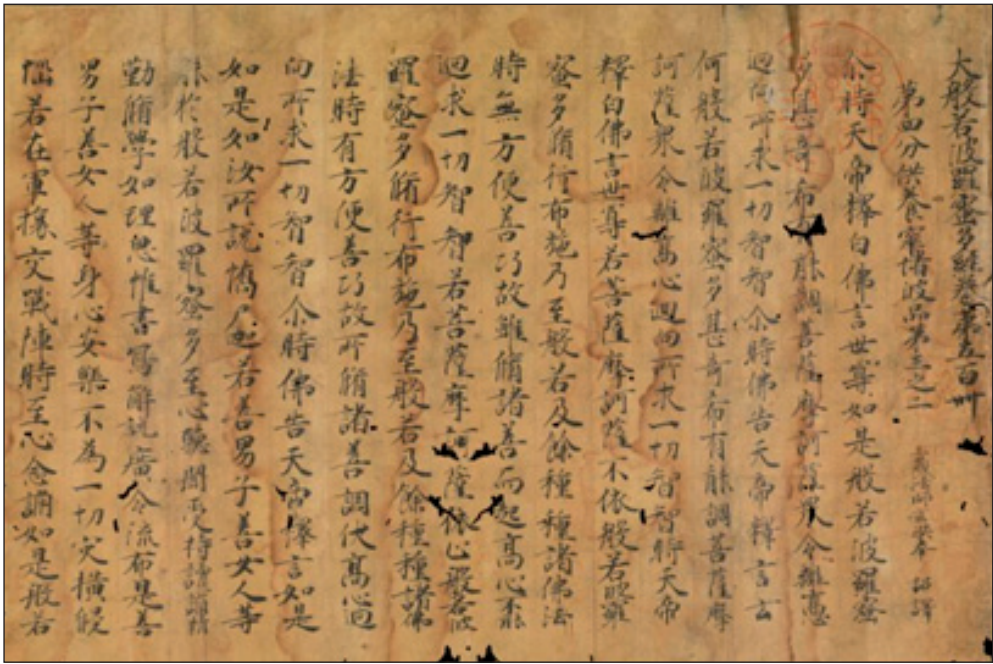 大般若波羅蜜多經卷第五百卌
第四分供養窣堵波品第三之二
三藏法師玄奘奉 詔譯
尒時天帝釋白佛言世尊如是般若波羅蜜
多甚奇希有能調菩薩摩訶薩眾令離高心
迴向所求一切智智尒時佛告天帝釋言云
何般若波羅蜜多甚奇希有能調菩薩摩
訶薩眾令離高心迴向所求一切智智時天帝
釋白佛言世尊若菩薩摩訶薩不依般若波羅
蜜多脩行布施乃至般若及餘種種諸佛法
時無方便善巧故雖脩諸善而起高心不能
迴求一切智智若菩薩摩訶薩依止般若波
羅蜜多脩行布施乃至般若及餘種種諸佛
法時有方便善巧故所脩諸善調伏高心迴
向所求一切智智尒時佛告天帝釋言如是
如是如汝所說憍尸迦若善男子善女人等
能於般若波羅蜜多至心聽聞受持讀誦精
勤脩學如理思惟書寫解說廣令流布是善
男子善女人等身心安樂不為一切灾橫侵
惱若在軍旅交戰陣時至心念誦如是般若